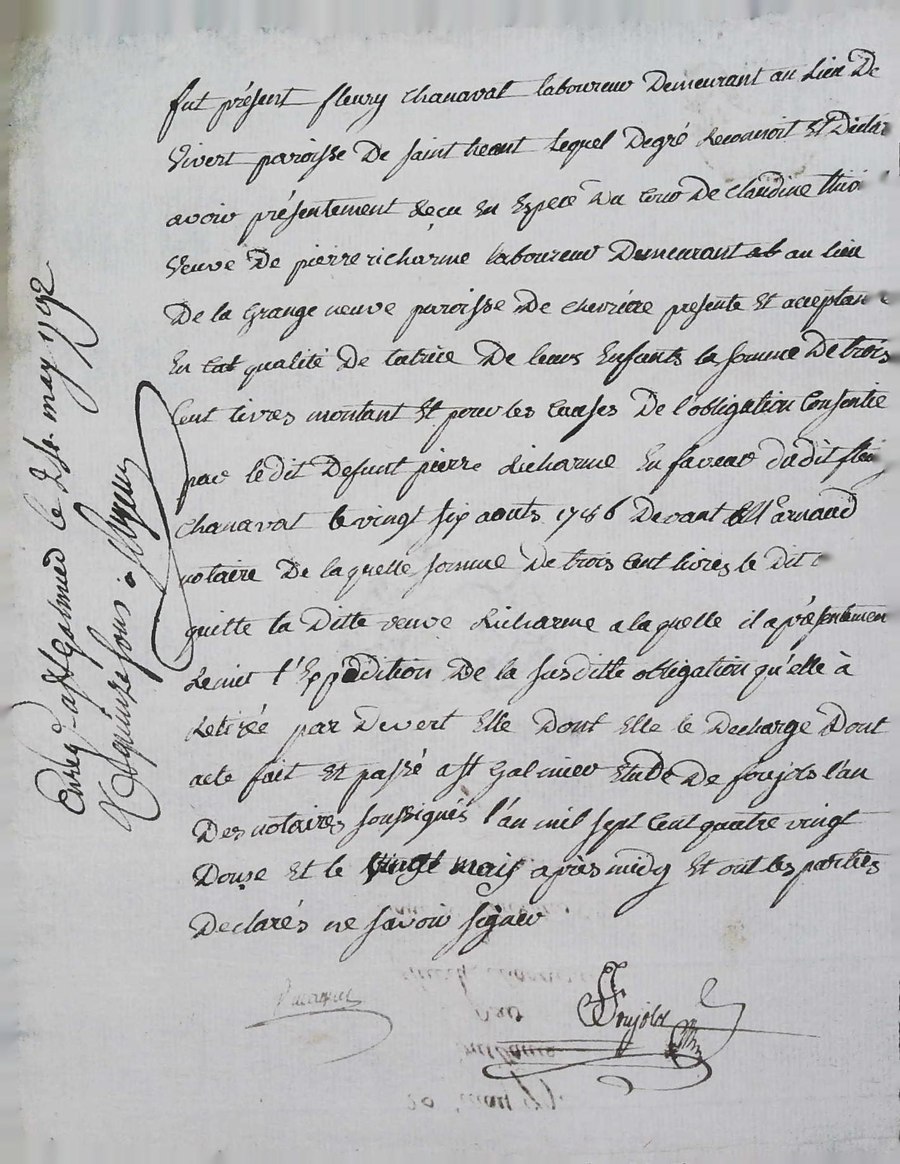 fut présent fleury chanavat laboureur Demeurant au Lieu De
Vivert paroisse De saint heant Lequel Degré Reconnoit Et Declar
avoir présentement Reçu En Espece Du Corio De Claudine thio
Veuve De pierre richarme Laboureur Demeurant au lieu
De la Grange neuve paroisse De chevriere presente Et acceptan
En tat qualité De tatrice De leurs Enfants la somme De trois
Cent Livres montant Et pour les Causes De l'obligation Consentie
par le dit Defunt pierre Richarme En faveur dudit fleu
Chanavat le vingt six aouts 1786 Devant Me arnaud
notaire De laquelle somme De trois Cent livres le Dit
quitte la Ditte veuve Richarme a laquelle il a présentemen
Remit l'Expedition De la susditte obligation qu'elle à
Retirée par Devert Elle Dont Elle le Decharge Dont
acte fait Et passé a St Galmier Etude De foujols l'au
Des notaires soussignés l'an mil sept Cent quatre vingt
Douze Et le vingt mais après midy Et ont les parties
Declarés ne savoir signer
foujols
Enregé a St Galmier le 24. may 1792
quinze sous